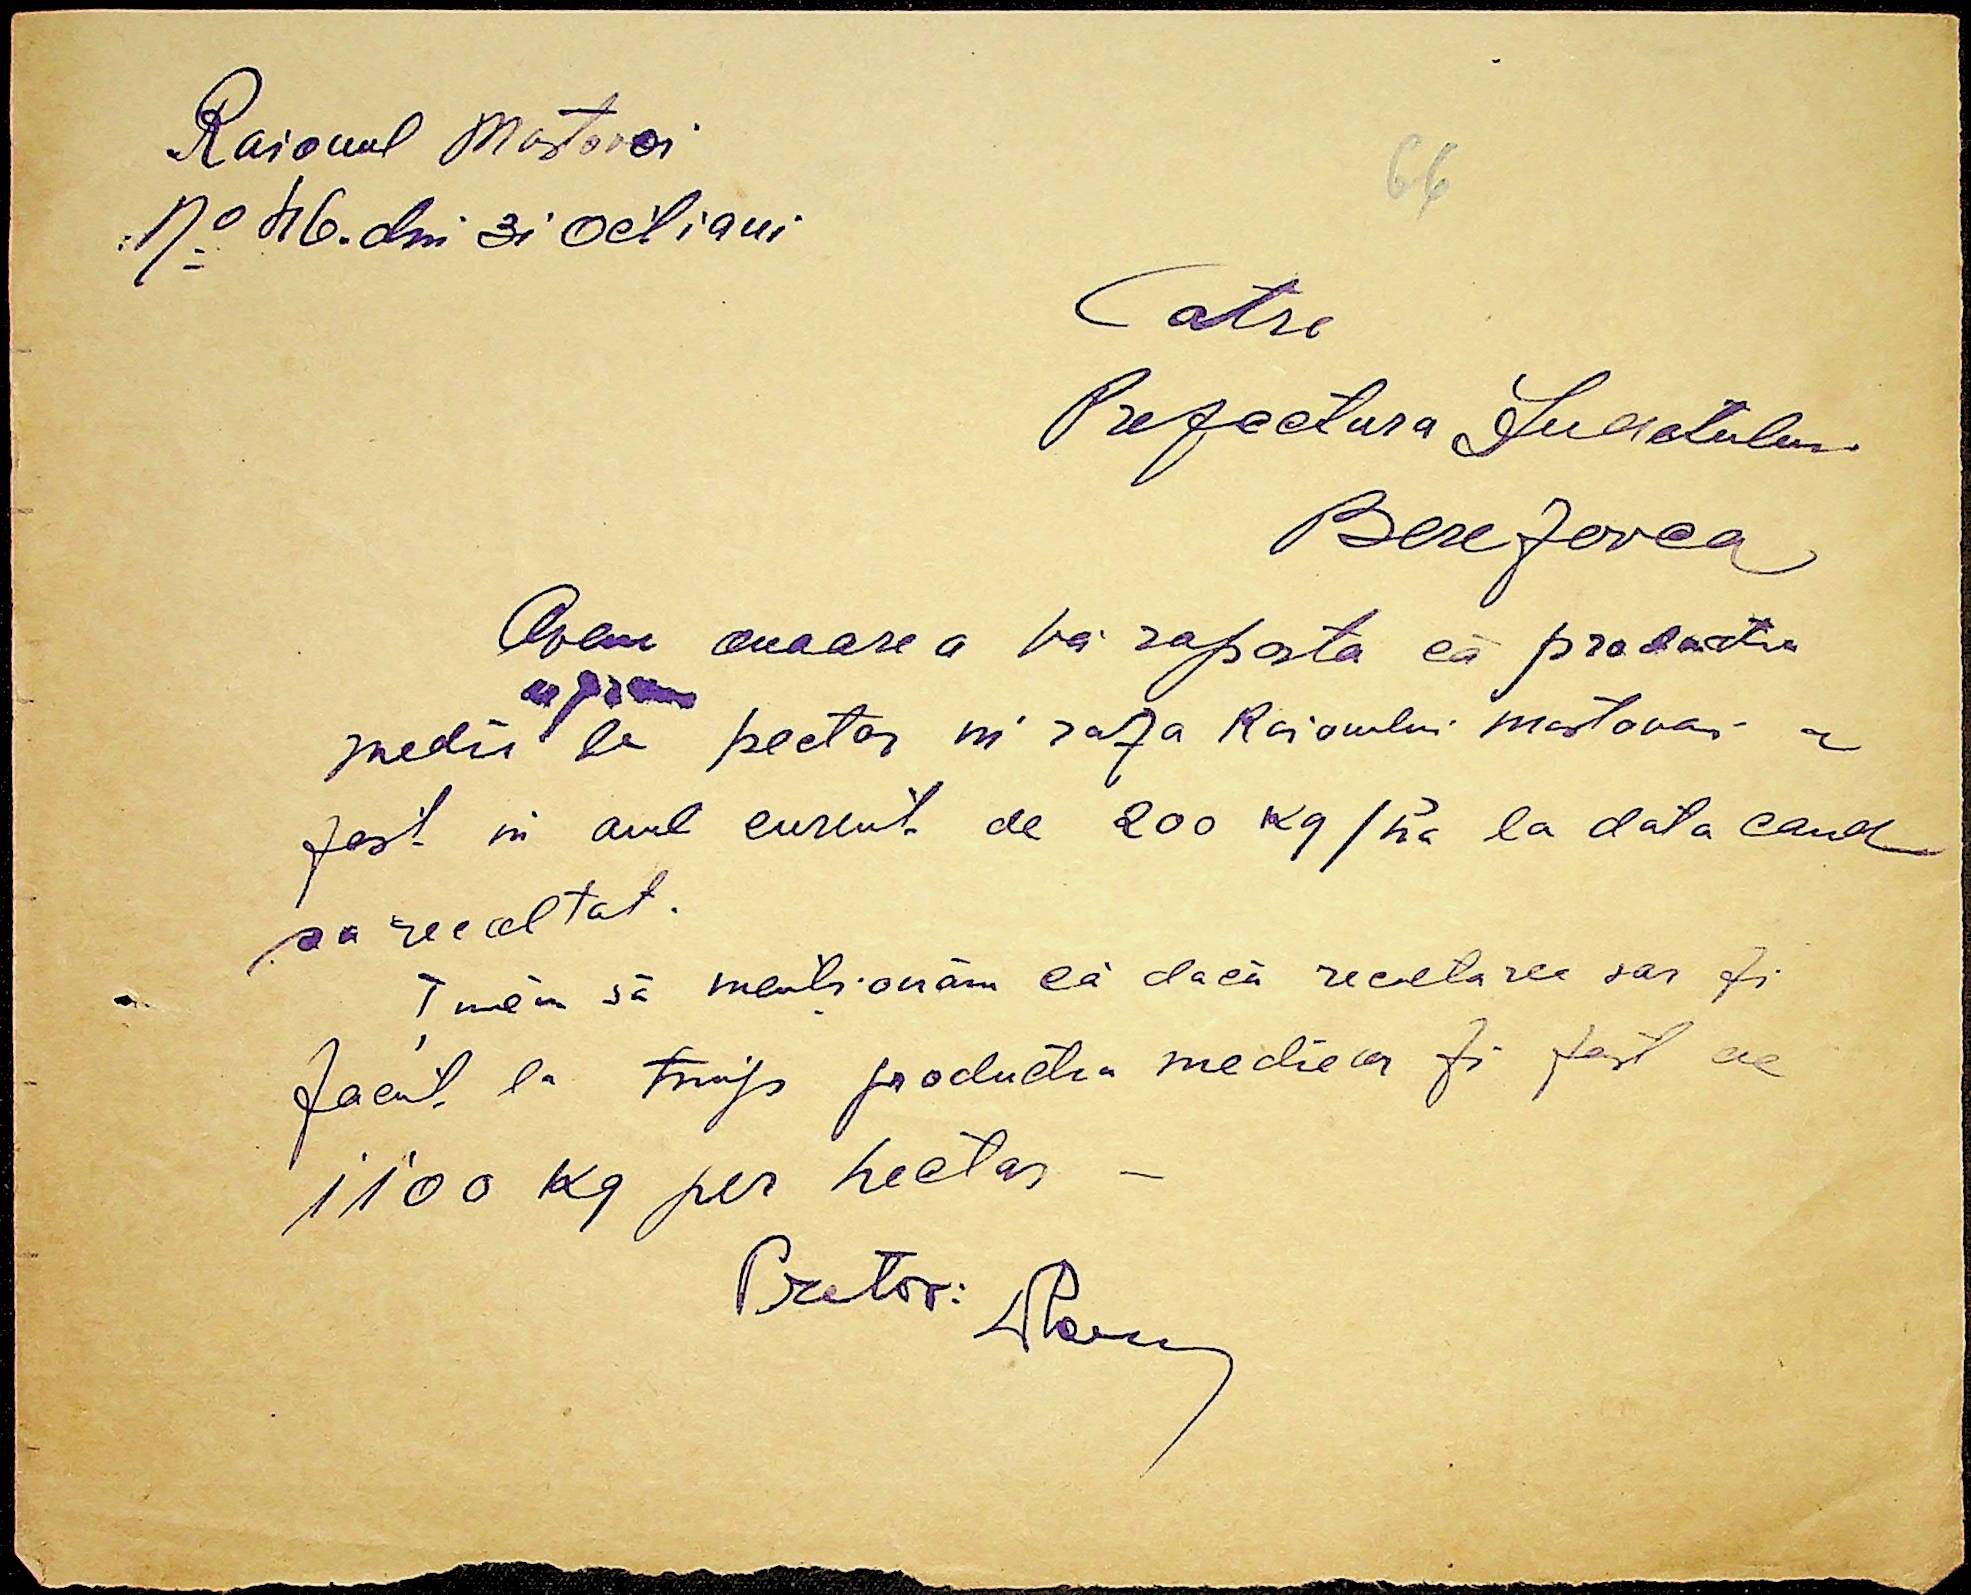 Raionul Mostovoi
No 46. din 31 Oct ianii
66
Catre
Prefectura Judetului
Berezovca
Avem onoarea vă raporta că productia
medie la hectar in raza Raionului Mostovoi a
fost in anul curent de 200 kg/ha la data cand
sa recoltat.
Ținem să mentionăm că dacă recoltarea sar fi
facut la timp productia medie ar fi fost de
1100 kg per hectar –
Pretor: